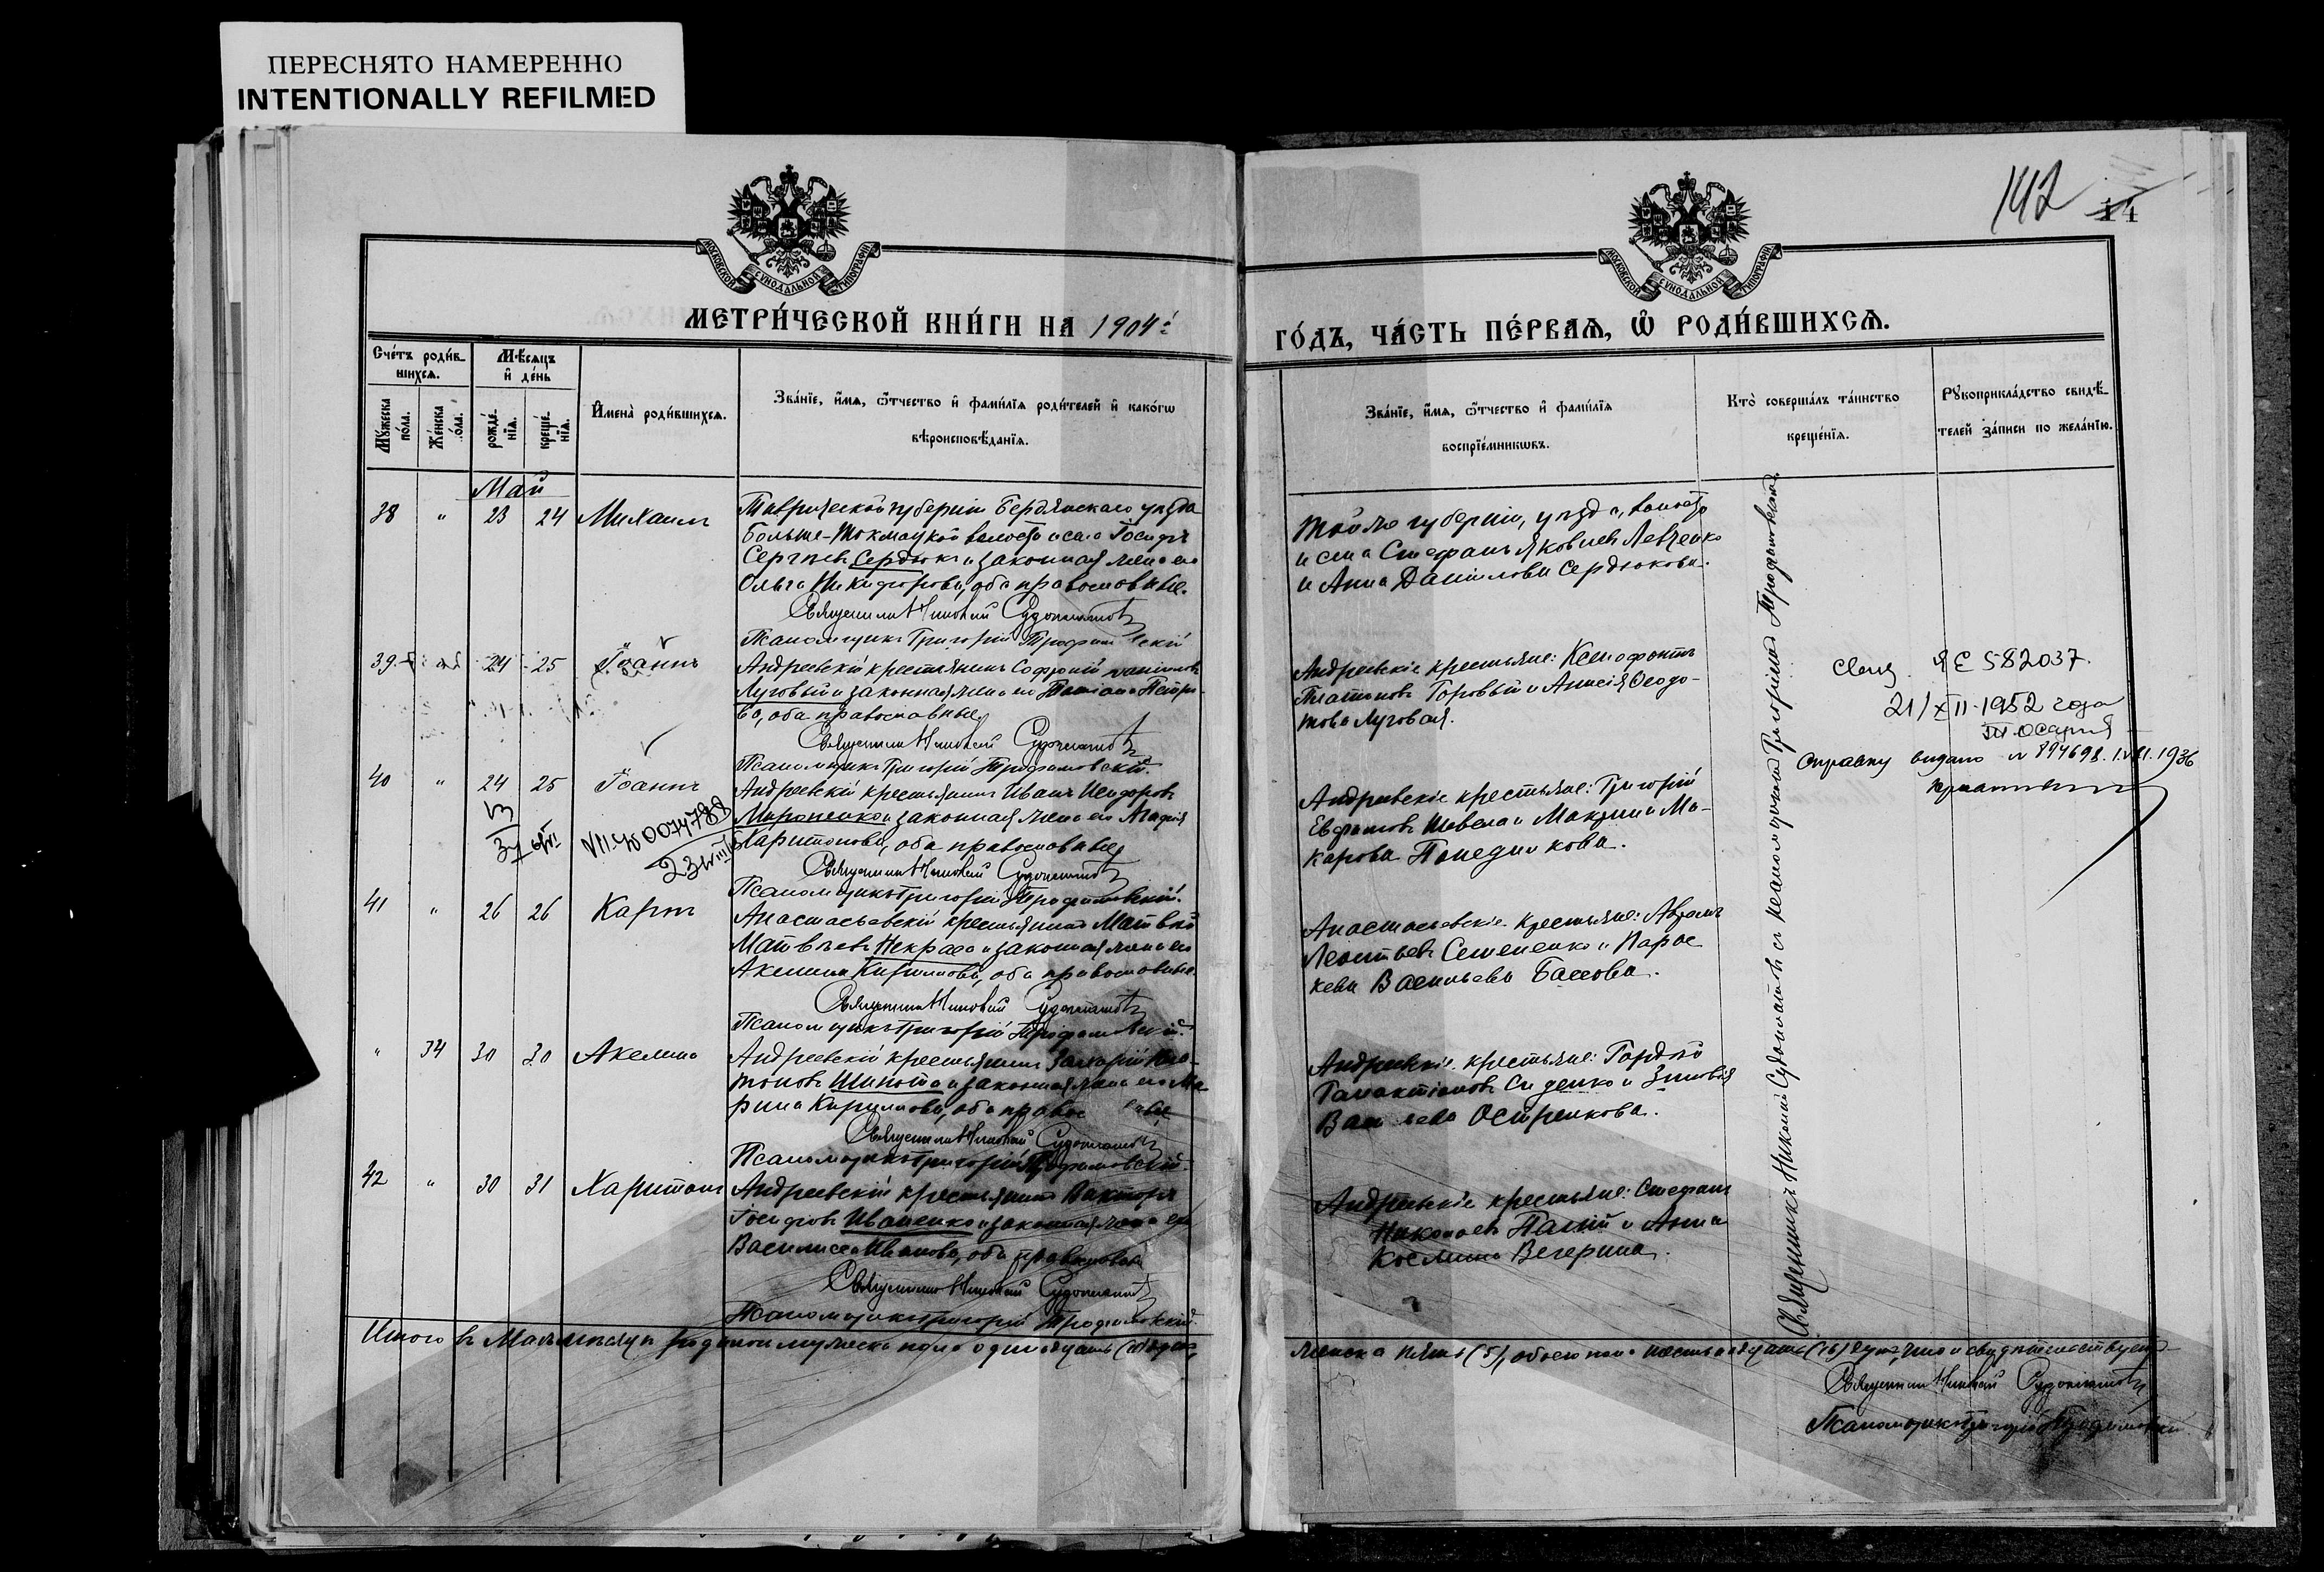 ПЕРЕСНЯТО НАМЕРЕННО
INTENTIONALLY REFILMED
142
14
МОСКОВСКОЙ СУНОДАЛЬНОЙ ТИПОГРАФІИ
МОСКОВСКОЙ СУНОДАЛЬНОЙ ТИПОГРАФІИ
МЕТРИ́ЧЕСКОЙ КНИ́ГИ НА 1904й
ГО́ДЪ, ЧА́СТЬ ПЕ́РВАѦ, Ѽ РОДИ́ВШИХСѦ.
Сче́тъ роди́в-
шихсѧ.
Мꙋ́жеска
по́ла.
Же́нска
по́ла.
Мѣ́сѧцъ
и҆ де́нь
рожде́-
нїѧ.
креще́-
нїѧ.
И҆мена̀ роди́вшихсѧ.
Зва́нїе, и҆́мѧ, ѻ҆́тчество и҆ фами́лїѧ роди́телей и҆ како́гѡ
вѣроисповѣ́данїѧ.
Зва́нїе, и҆́мѧ, ѻ҆́тчество и҆ фами́лїѧ
воспрїе́мникѡвъ.
Кто̀ соверша́лъ та́инство
креще́нїѧ.
Рꙋкоприкла́дство свидѣ́-
телей за́писи по жела́нїю.
Май
38 " 23 24 Михаилъ
Таврической губерніи Бердянскаго уѣзда
Больше-Токмацкой волости и села Іосифъ
Сергѣевъ Сердюкъ и законная жена его
Ольга Никифорова, оба православные.
Священникъ Николай Судоплатовъ
Псаломщикъ Григорій Трофимовскій
Той же губерніи, уѣзда, волости
и села Стефанъ Яковлевъ Левченко
и Анна Данилова Сердюкова.
39 24 25 Іоаннъ
Андреевскій крестьянинъ Софроній
Луговый и законная жена его Татіана Петро-
ва, оба православные
Священникъ Николай Судоплатовъ
Псаломщикъ Григорій Трофимовскій.
Андреевскіе крестьяне: Ксенофонтъ
Платоновъ Горовый и Анисія Ѳеодо-
това Луговая.
ЯЕ 582037.
21/XII-1952 года
40 " 24 25 Іоаннъ
Андреевскій крестьянинъ Иванъ Исидоровъ
Мироненко и законная жена его Агафія
Харитонова, оба православные
Священникъ Николай Судоплатовъ
Псаломщикъ Григорій Трофимовскій.
Андреевскіе крестьяне: Григорій
Шевела и Макрина Ма-
карова Понедилкова.
Справку видано № 894698. 1936
41 " 26 26 Карпъ
Анастасьевскій крестьянинъ Матвѣй
Матвѣевъ Некраса и законная жена его
Акилина Кириллова, оба православные.
Священникъ Николай Судоплатовъ
Псаломщикъ Григорій Трофимовскій.
Анастасьевскіе крестьяне: Авраамъ
Леонтьевъ Семененко и Парас-
кева Васильева Бассова.
" 34 30 30 Акилина
Андреевскій крестьянинъ Захарій Пла-
тоновъ Шинота и законная жена его Ма-
рина Кириллова, оба православные
Священникъ Николай Судоплатовъ
Псаломщикъ Григорій Трофимовскій.
Андреевскіе крестьяне: Гордѣй
Галактіоновъ Сиденко и Зиновія
Васильева Остренкова.
42 " 30 31 Харитонъ
Андреевскій крестьянинъ Викторъ
Іосифовъ Иваненко и законная жена его
Василисса Иванова, оба православные
Священникъ Николай Судоплатовъ
Псаломщикъ Григорій Трофимовскій.
Андреевскіе крестьяне: Стефанъ
Николаевъ Палій и Анна
Космина Вечерина.
Священникъ Николай Судоплатовъ съ псаломщикомъ Григоріемъ Трофимовскимъ
Итого въ Маѣ мѣсяцѣ родилось мужеска пола одинадцать (11) душъ,
женска пять (5), обоего пола шестнадцать (16) душъ, что и свидѣтельствуемъ
Священникъ Николай Судоплатовъ
Псаломщикъ Григорій Трофимовскій